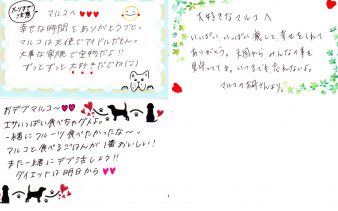 大好きすぎ注意
マルコへ♥♥♥
幸せな時間をありがとうって。
マルコは天使でアイドルだもん。
大事な家族で宝物だよ!!
ずーっとずーっと大好きだでね♡
大好きなマルコへ
いっぱい、いっぱい癒しと幸せをくれて
ありがとう。天国から みんなの事を
見守ってよ。いつまでも忘れないよ。
マルコのお母さんより。
おデブマルコ〜♥♥
エサいっぱい食べちゃダメよ。
一緒にフルーツ食べたかったな〜。
マルコと食べるごはんが1番おいしい!
また一緒にデブ活しよう!!
ダイエットは明日から♥♥